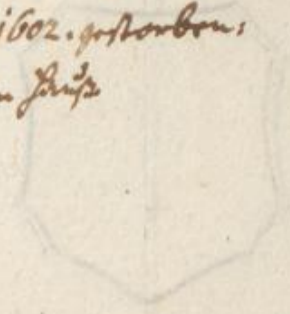 1602. gestorben:
n Hauß